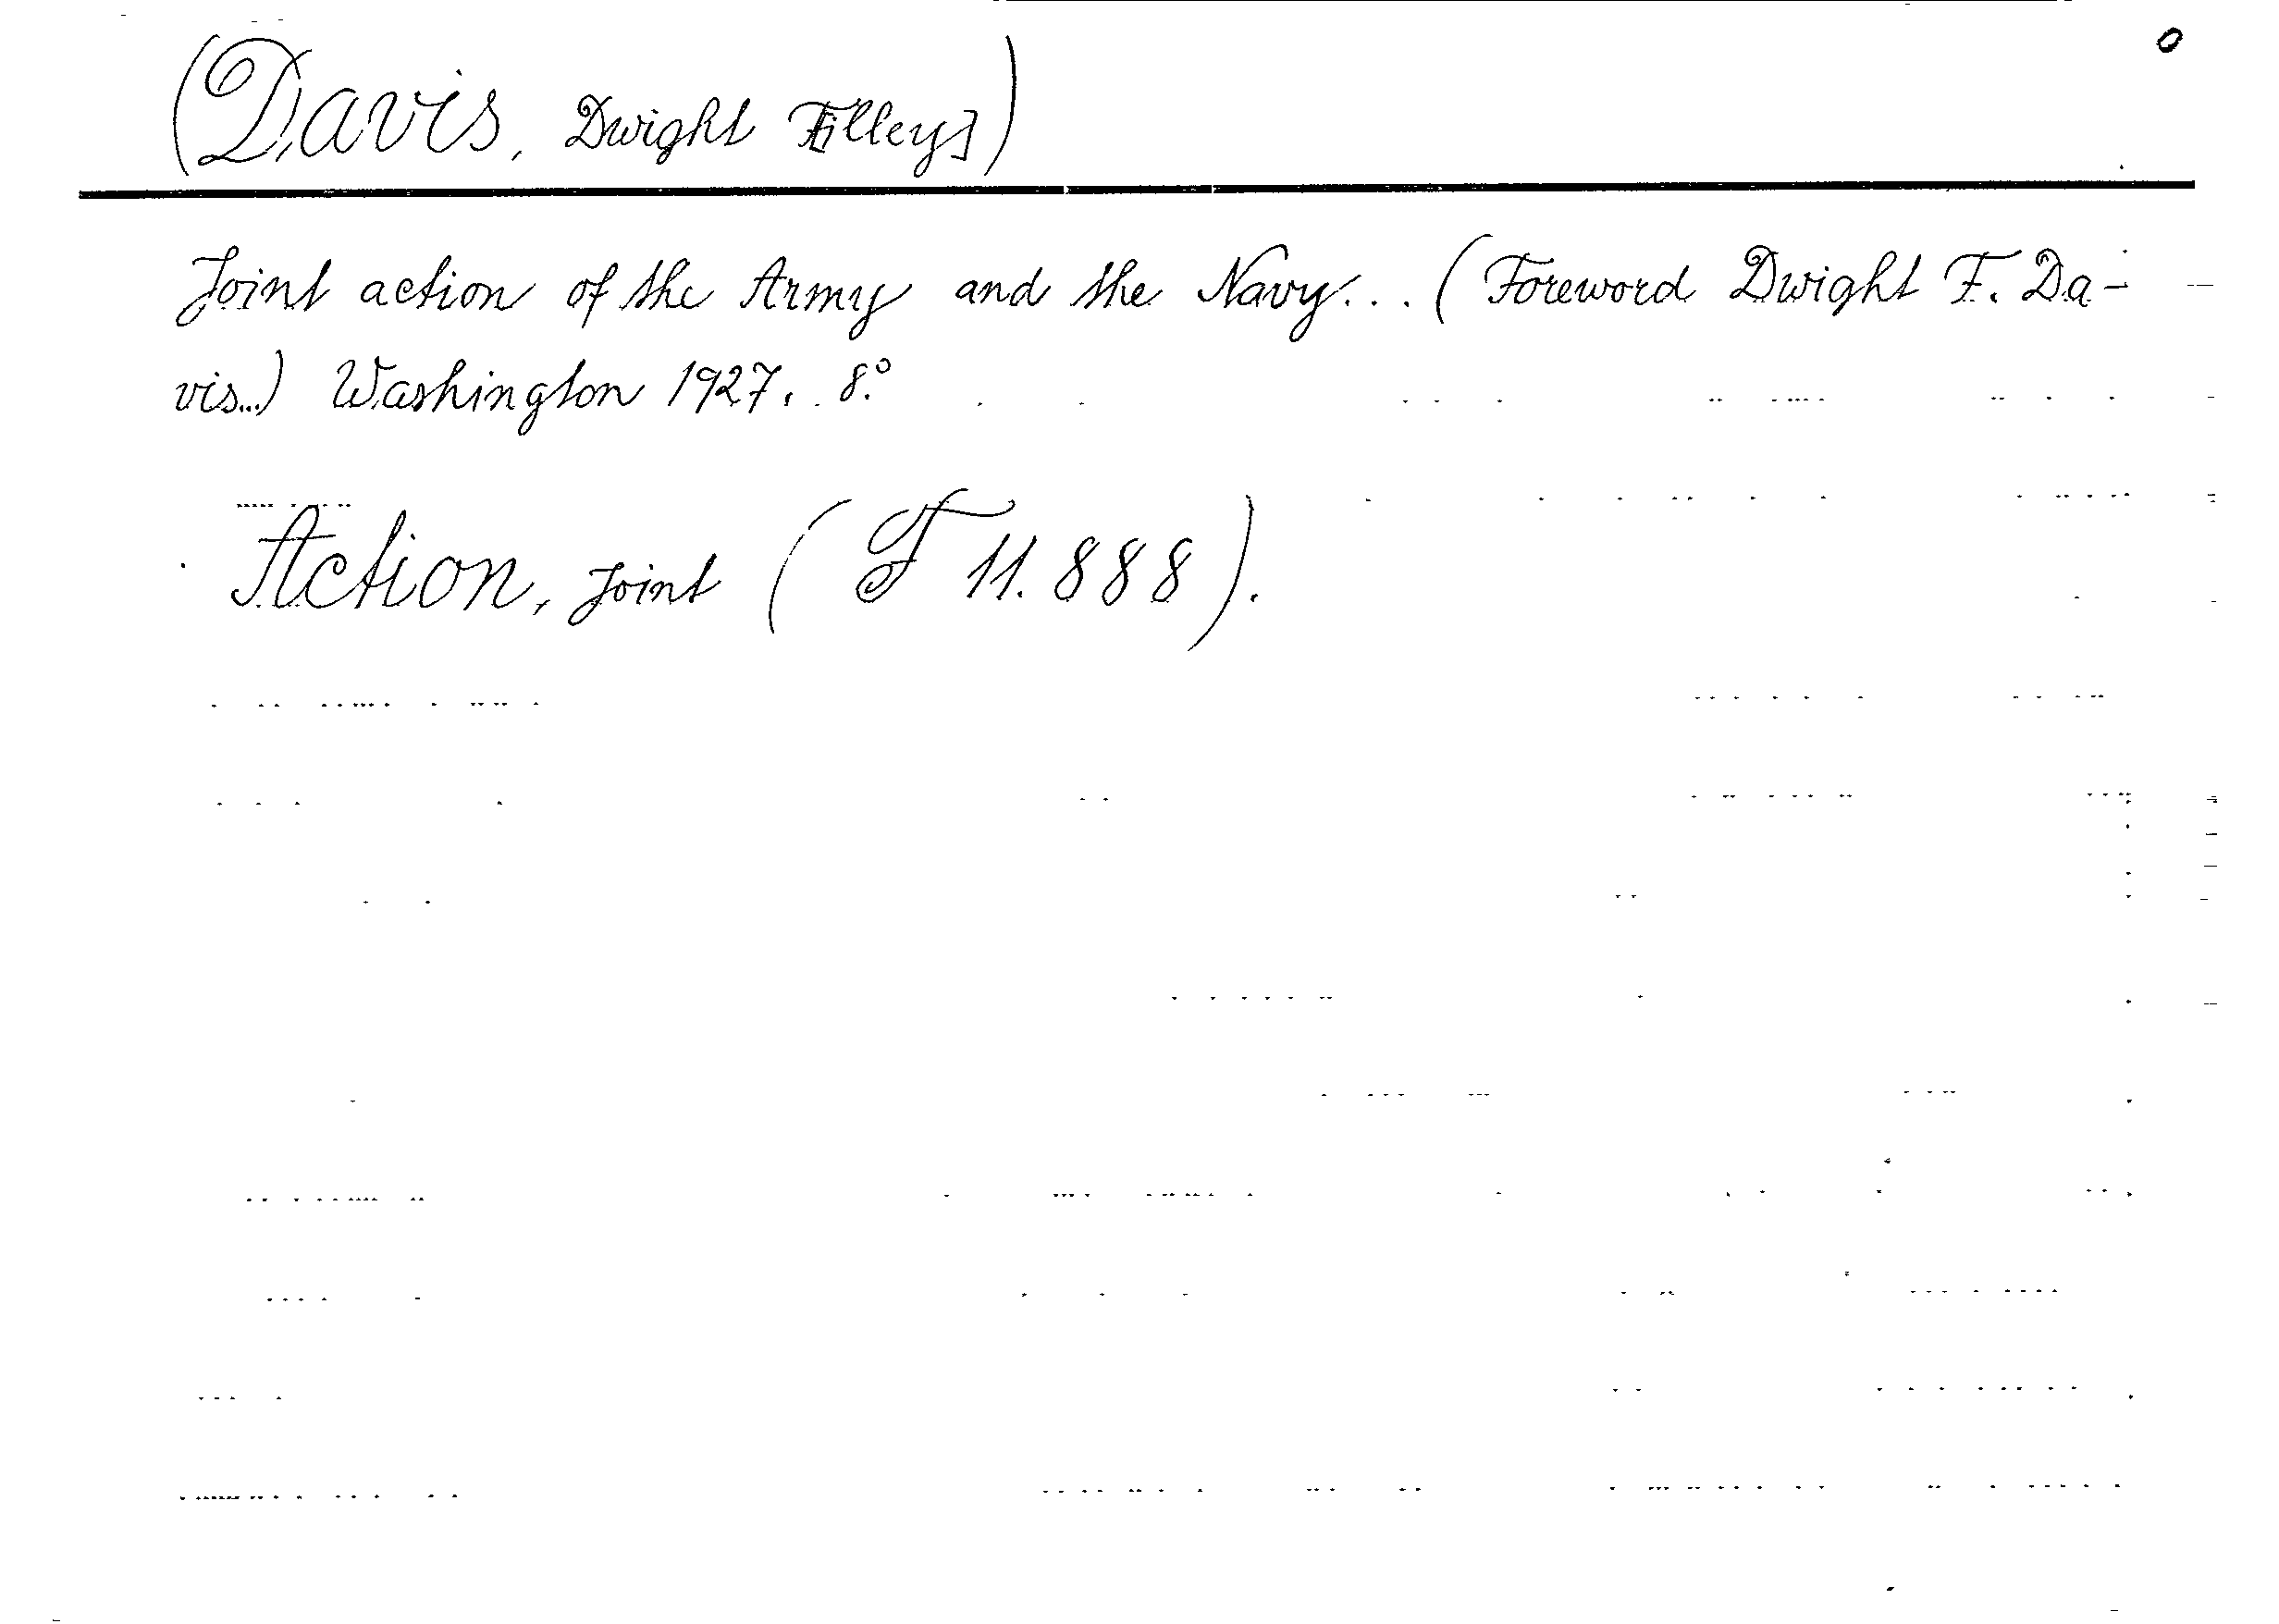 (Davis, Dwight F[illey])
Joint action of the Army and the Navy... (Foreword Dwight F. Da-
vis...) Washington 1927. 8.°
Action, Joint (F 11.888).